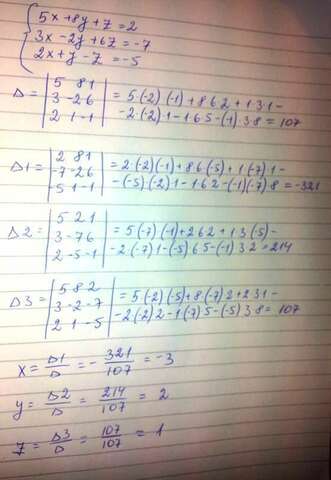 5x+8y+z=2
3x-2y+6z=-7
2x+y-z=-5
Δ = | 5 8 1 |
| 3 -2 6 | = 5(-2)(-1)+8 6 2+1 3 1-
| 2 1 -1 | -2(-2)1-1 6 5-(-1)3 8 = 107
Δ1 = | 2 8 1 |
| -7 -2 6 | = 2·(-2)(-1)+8 6(-5)+1(-7)1-
| -5 1 -1 | -(-5)(-2)1-1 6 2-(-1)(-7)8 = -321
Δ2 = | 5 2 1 |
| 3 -7 6 | = 5(-7)(-1)+2 6 2+1 3(-5)-
| 2 -5 -1 | -2(-7)1-(-5)6 5-(-1)3 2 = 214
Δ3 = | 5 8 2 |
| 3 -2 -7 | = 5(-2)(-5)+8(-7)2+2 3 1-
| 2 1 -5 | -2(-2)2-1(-7)5-(-5)3 8 = 107
x = Δ1/Δ = -321/107 = -3
y = Δ2/Δ = 214/107 = 2
z = Δ3/Δ = 107/107 = 1